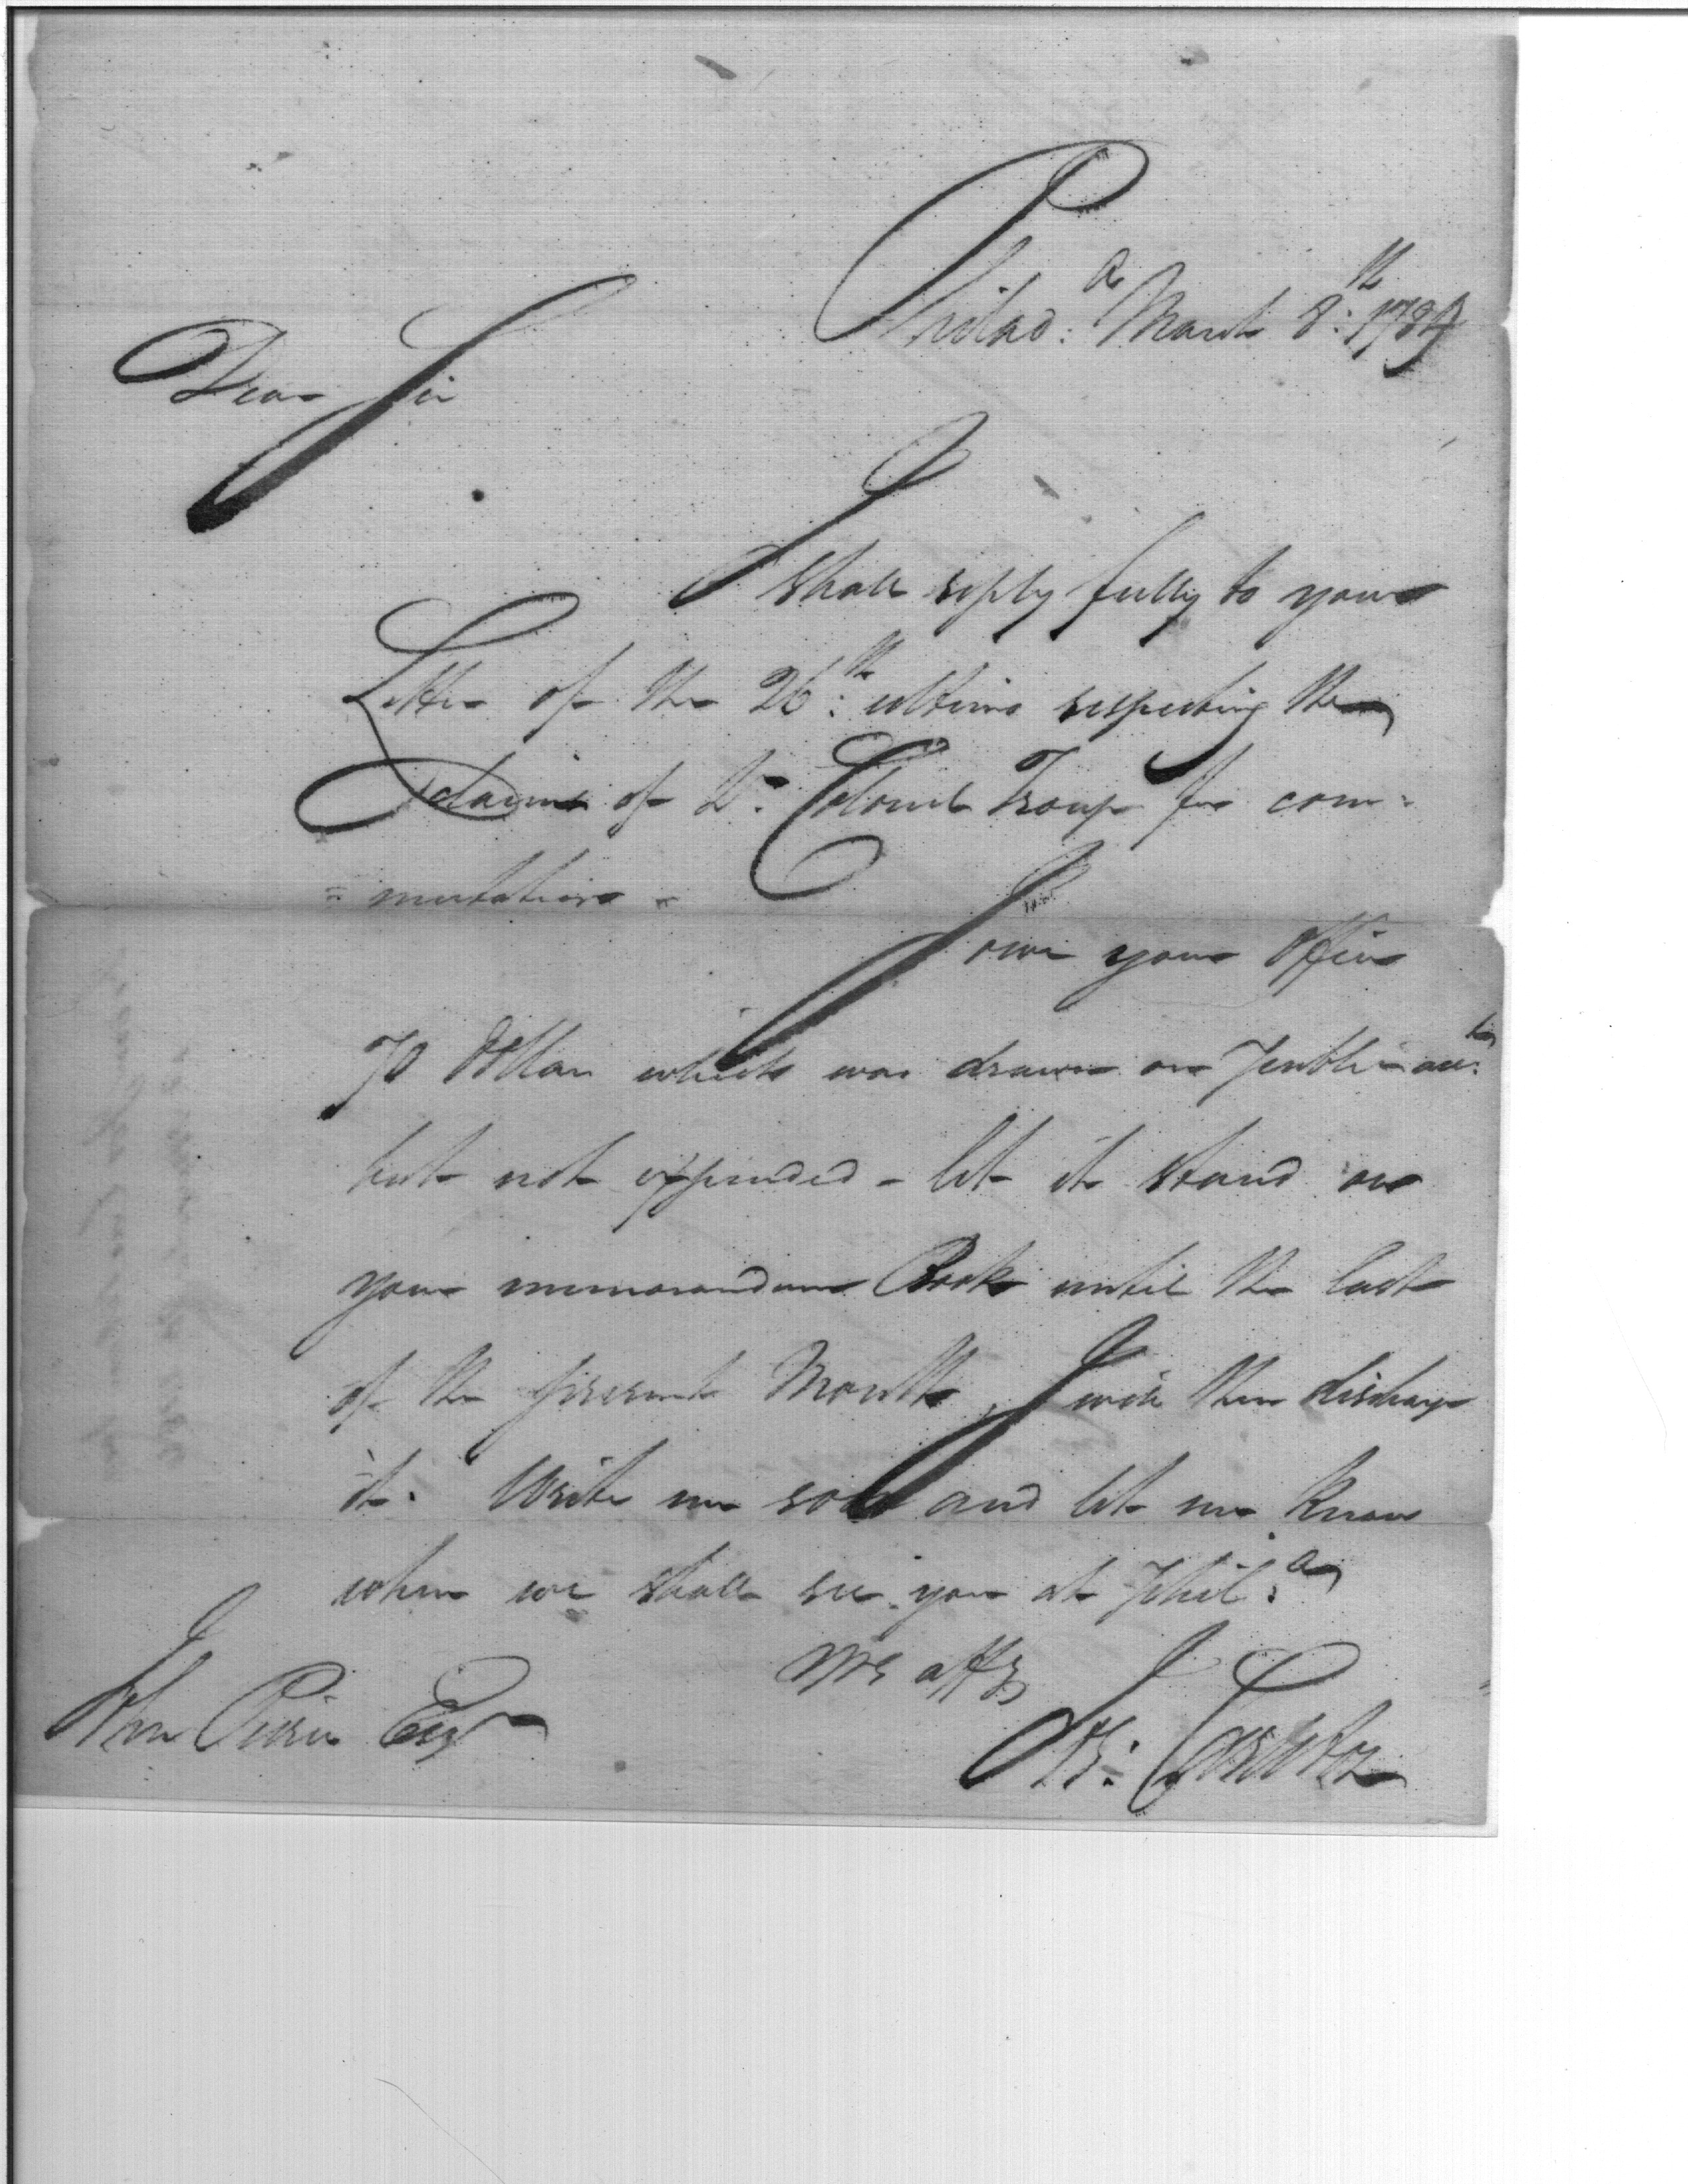 Philad:a March 8:th 1784
Dear Sir
I shall reply fully to your
Letter of the 26:th ultimo respecting the
claim of Lt: Colonel Troup for com=
=mutation -
I owe your Office
70 Dollars which was drawn on Public acc:ts
but not expended - let it stand on
your memorandum Book until the last
of the present Month, I will then discharge
it. Write me soon and let me know
when we shall see you at Phil:a
Yrs affy
John Pierce Esqr